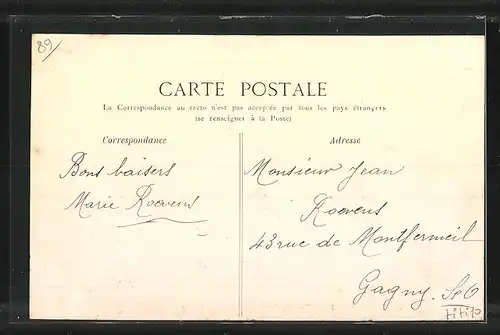 89/
CARTE POSTALE
La Correspondance au recto n'est pas acceptée par tous les pays étrangers
(se renseigner à la Poste)
Correspondance
Bons baisers
Marie Roevens
Adresse
Monsieur Jean
Roevens
43 rue de Montfermeil
Gagny. S et O